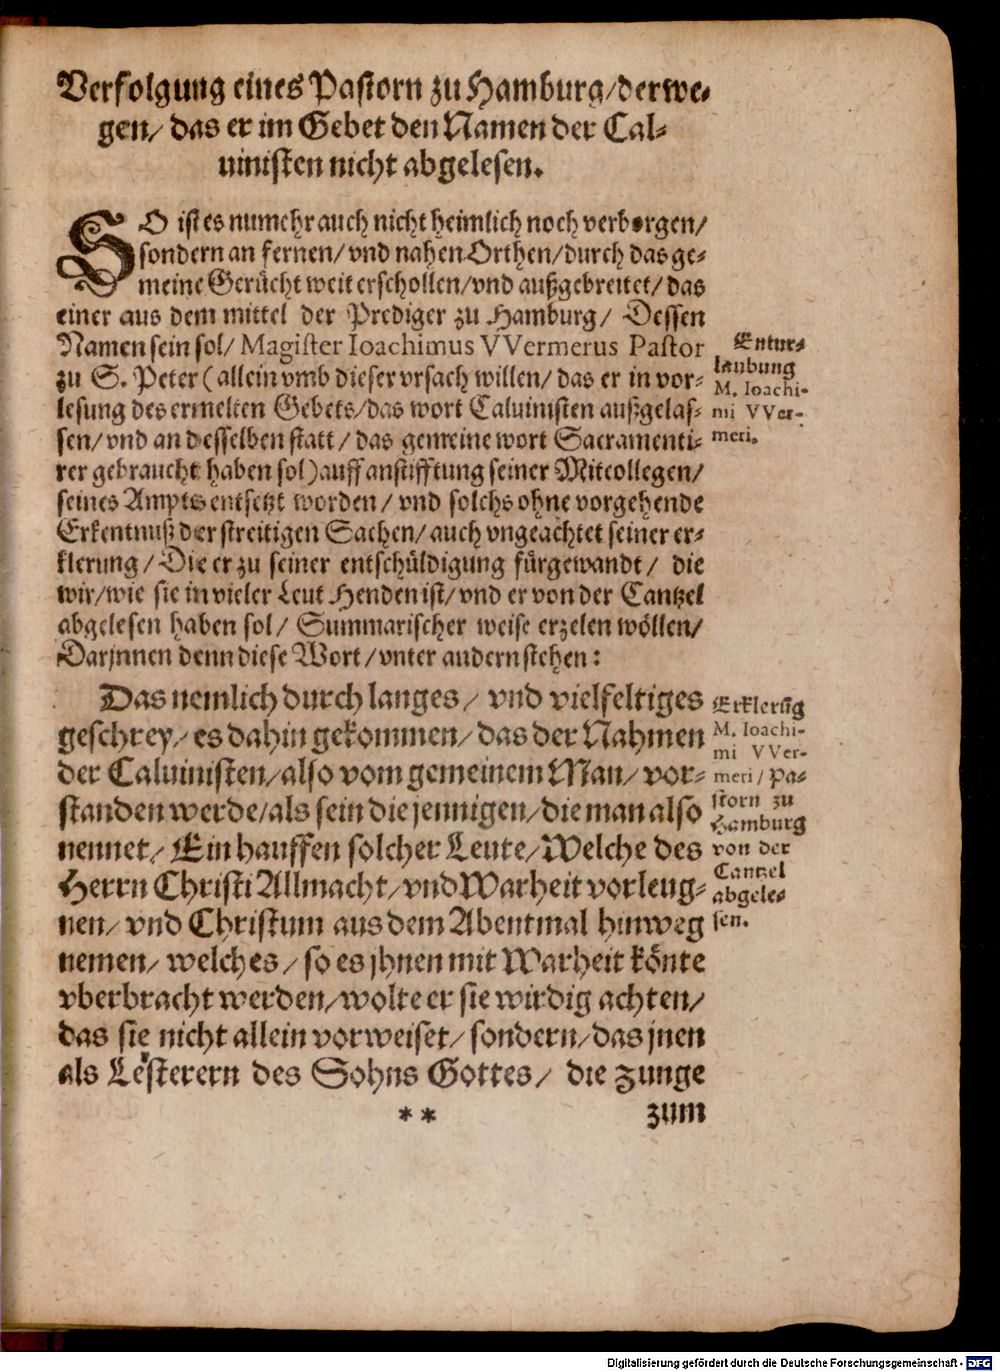 Verfolgung eines Pastorn zu Hamburg/derwe-
gen/ das er im Gebet den Namen der Cal-
uinisten nicht abgelesen.
SO ist es numehr auch nicht heimlich noch verborgen/
sondern an fernen/ vnd nahen Orthen/ durch das ge-
meine Gerücht weit erschollen/ vnd außgebreitet/ das
einer aus dem mittel der Prediger zu Hamburg/ Dessen
Namen sein sol/ Magister Ioachimus VVermerus Pastor
zu S. Peter (allein vmb dieser vrsach willen/ das er in vor-
lesung des ermelten Gebets/ das wort Caluinisten außgelas-
sen/ vnd an desselben statt/ das gemeine wort Sacramenti-
rer gebraucht haben sol) auff anstifftung seiner Mitcollegen/
seines Ampts entsetzt worden/ vnd solchs ohne vorgehende
Erkentnuß der streitigen Sachen/ auch vngeachtet seiner er-
klerung/ Die er zu seiner entschüldigung fürgewandt/ die
wir/ wie sie in vieler Leut Henden ist/ vnd er von der Cantzel
abgelesen haben sol/ Summarischer weise erzelen wöllen/
Darjnnen denn diese Wort/ vnter andern stehen:
Entur-
laubung
M. Ioachi-
mi VVer-
meri.
Das nemlich durch langes/ vnd vielfeltiges
geschrey/ es dahin gekommen/ das der Nahmen
der Caluinisten/ also vom gemeinem Man/ vor-
standen werde/ als sein die jennigen/ die man also
nennet/ Ein hauffen solcher Leute/ Welche des
Herrn Christi Allmacht/ vnd Warheit vorleug-
nen/ vnd Christum aus dem Abentmal hinweg
nemen/ welches/ so es jhnen mit Warheit könte
vberbracht werden/ wolte er sie wirdig achten/
das sie nicht allein vorweiset/ sondern/ das jnen
als Lesterern des Sohns Gottes/ die zunge
Erklerūg
M. Ioachi-
mi VVer-
meri/ Pa-
storn zu
Hamburg
von der
Cantzel
abgele-
sen.
** zum
Digitalisierung gefördert durch die Deutsche Forschungsgemeinschaft - DFG